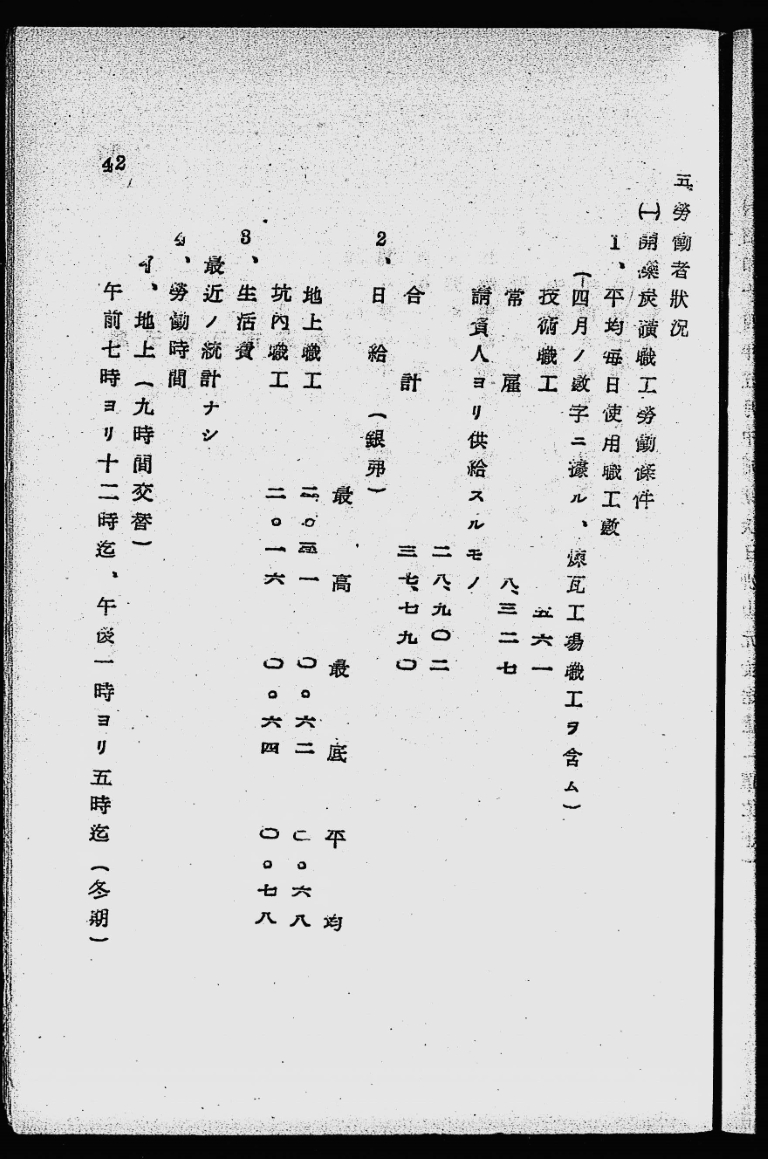 五、勞働者狀況
(一)開灤炭礦職工勞働條件
1、平均每日使用職工數
(四月ノ數字ニ據ル、煉瓦工場職工ヲ含ム)
技術職工 五六一
常雇 八、三二七
請負人ヨリ供給スルモノ
二八、九〇二
合計 三七、七九〇
2、日給(銀弗)
最高 最底 平均
地上職工 〇。六二 〇。六八
坑內職工 二。一六 〇。六四 〇。七八
3、生活費
最近ノ統計ナシ
4、勞働時間
イ、地上(九時間交替)
午前七時ヨリ十二時迄、午後一時ヨリ五時迄(冬期)
42